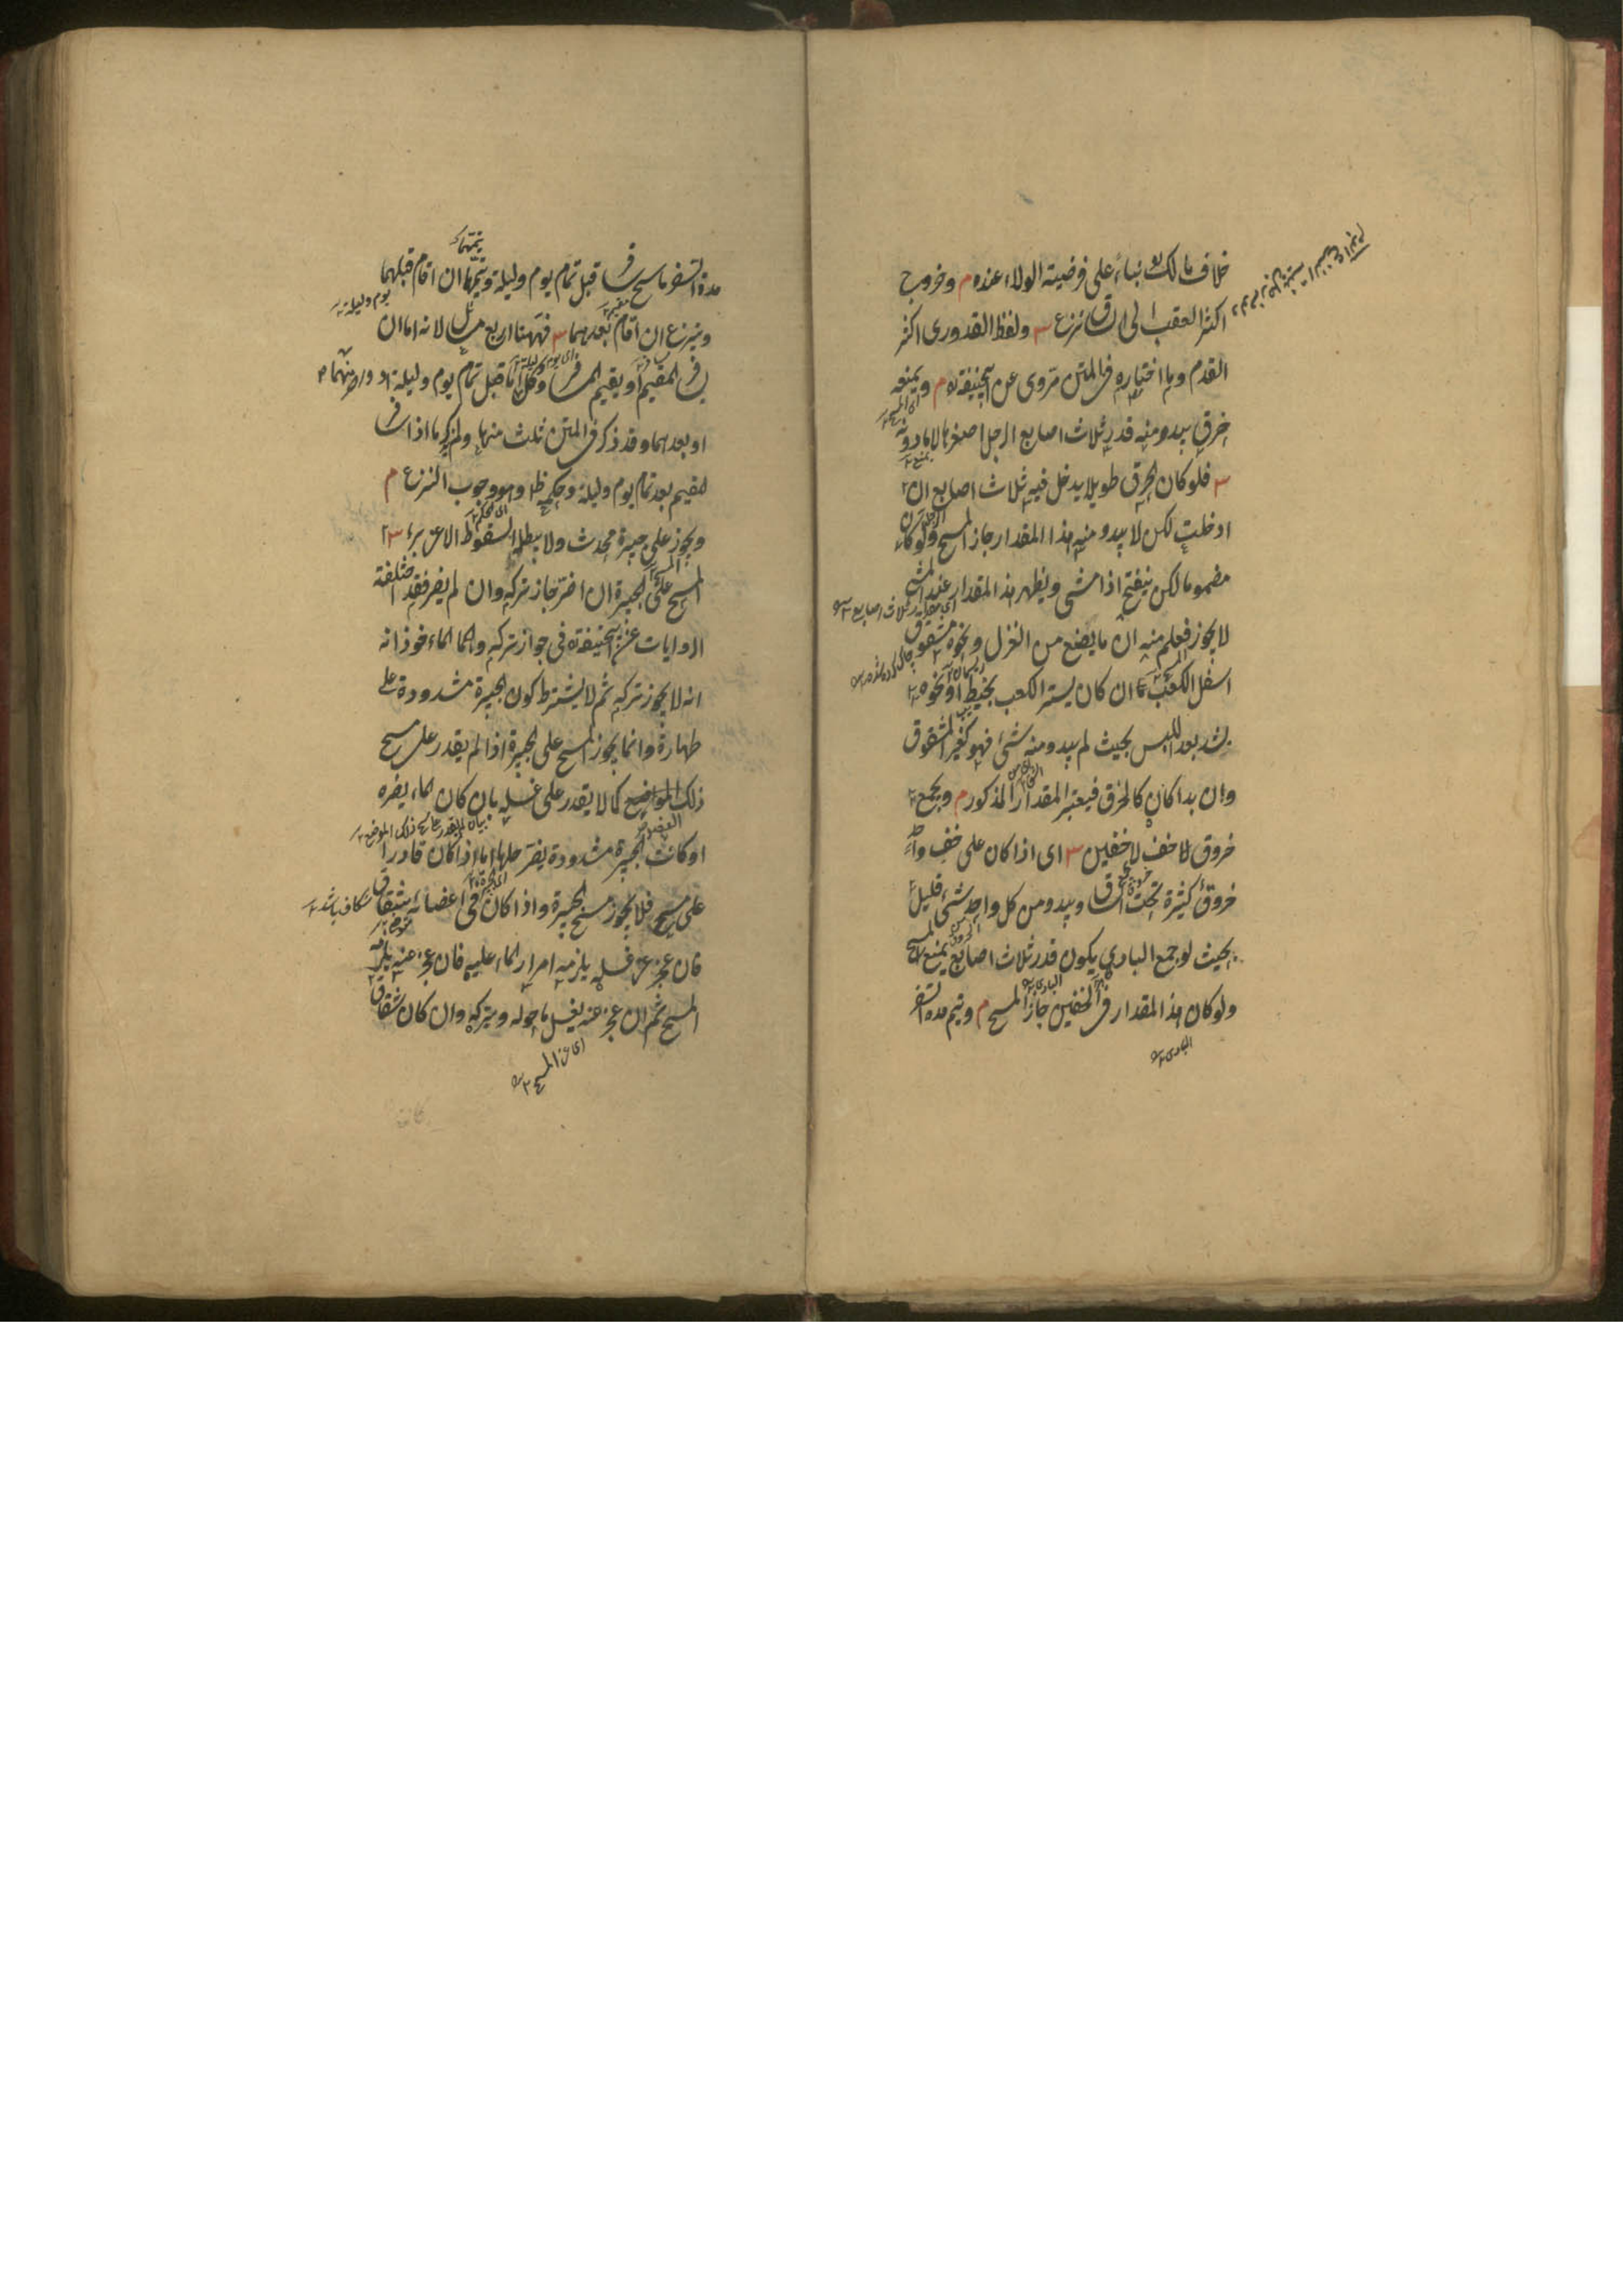 خلاف مالك رح بناءً على فرضية الولاء عنده م وخروج
اكثر العقب الى الساق نزع ش ولفظ القدورى اكثر
القدم وما اختاره فى المتن مروى عن ابيحنيفة رح م ويمنعه
خرق يبدو منه قدر ثلاث اصابع الرجل اصغرها لا ما دونه
ش فلو كان الخرق طويلا يدخل فيه ثلاث اصابع ان
ادخلت لكن لا يبدو منه هذا المقدار جاز المسح ولو كان
مضموما لكن ينفتح اذا مشى ويظهر هذا المقدار عند المشى
لا يجوز فعلم منه ان ما يصنع من الغزل ونحوه مشقوق
اسفل الكعب ان كان يستر الكعب بخيط او نحوه
يشد بعد اللبس بحيث لم يبدو منه شئ فهو كغير المشقوق
وان بدا كان كالخرق فيعتبر المقدار المذكور م ويجمع
خروق خف لا خفين ش اى اذا كان على خف واحد
خروق كثيرة تحت الساق ويبدو من كل واحد شئ قليل
بحيث لو جمع البادى يكون قدر ثلاث اصابع يمنع المسح
ولو كان هذا المقدار فى الخفين جاز المسح م ويتم مدة السفر
البادى
مدة السفر ماسح سافر قبل تمام يوم وليلة ويتمهما ان اقام قبلهما
يوم وليلة
وينزع ان اقام بعدهما ش فههنا اربع مسائل لانه اما ان
يسافر المقيم او يقيم المسافر وكل اما قبل تمام يوم وليلة
او بعدهما وقد ذكر فى المتن ثلث منها ولم يذكر ما اذا سافر
المقيم بعد تمام يوم وليلة وحكمه ظ وهو وجوب النزع م
ويجوز على جبيرة محدث ولا يبطله السقوط الا عن برء ش
المسح على الجبيرة ان اضر جاز تركه وان لم يضر فقد اختلفت
الروايات عن ابيحنيفة رح فى جواز تركه والماخوذ انه
انه لا يجوز تركه ثم لا يشترط كون الجبيرة مشدودة على
طهارة وانما يجوز المسح على الجبيرة اذا لم يقدر على مسح
ذلك الموضع كما لا يقدر على غسله بان كان الماء يضره
او كانت الجبيرة مشدودة يضر حلها اما اذا كان قادرا
على مسحه فلا يجوز مسح الجبيرة واذا كان فى اعضائه شقاق
فان عجز عن غسله يلزمه امرار الماء عليه فان عجز عنه يلزمه
المسح ثم ان عجز عنه يغسل ما حوله ويتركه وان كان شقاق
اى عن المسح